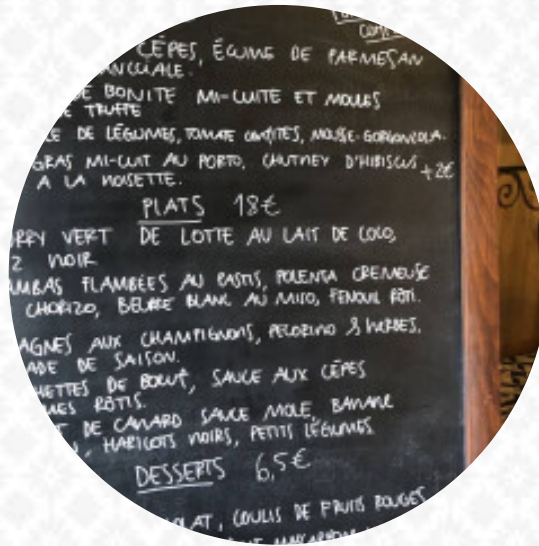 CÈPES, ÉCUME DE PARMESAN
BONITE MI-CUITE ET MOULES
TRUFFE
DE LÉGUMES, TOMATE CONFITES, MOUSSE GORGONZOLA.
GRAS MI-CUIT AU PORTO, CHUTNEY D'HIBISCUS +2€
A LA NOISETTE.
PLATS 18€
VERT DE LOTTE AU LAIT DE COCO,
NOIR
FLAMBÉES AU PASTIS, POLENTA CRÉMEUSE
CHORIZO, BEURRE BLANC AU MISO, FENOUIL RÔTI.
AUX CHAMPIGNONS, PECORINO & HERBES,
DE SAISON.
DE BOEUF, SAUCE AUX CÈPES
RÔTIS.
DE CANARD SAUCE MOLE, BANANE
, HARICOTS NOIRS, PETITS LÉGUMES
DESSERTS 6,5€
, COULIS DE FRUITS ROUGES